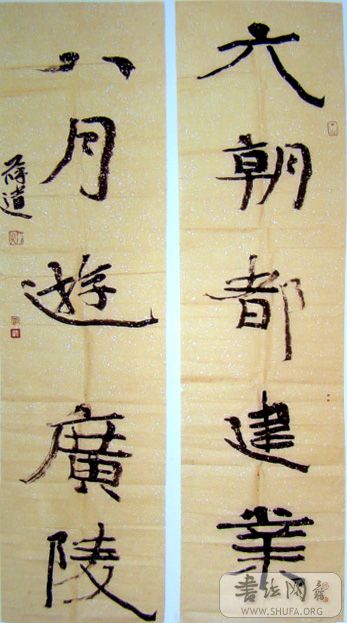 六朝都建業
八月遊廣陵
道
WWW.SHUFA.ORG